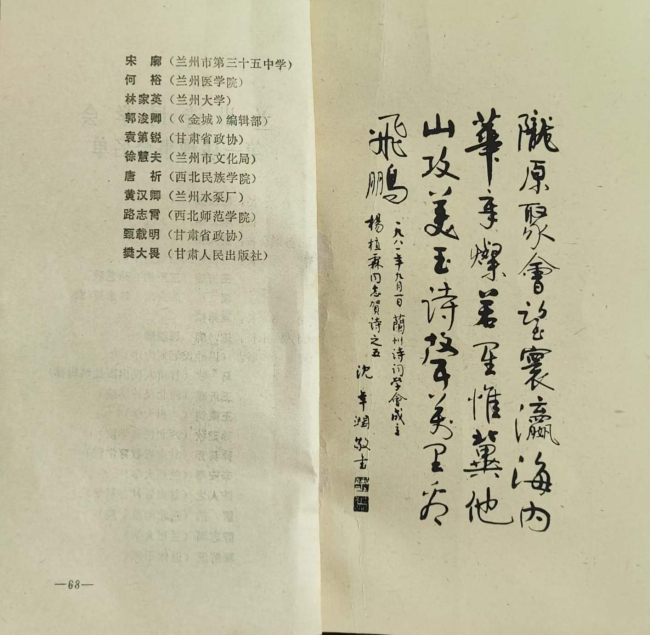 宋　廓（兰州市第三十五中学）
何　裕（兰州医学院）
林家英（兰州大学）
郭浚卿（《金城》编辑部）
袁第锐（甘肃省政协）
徐慧夫（兰州市文化局）
唐　祈（西北民族学院）
黄汉卿（兰州水泵厂）
路志霄（西北师范学院）
甄载明（甘肃省政协）
樊大畏（甘肃人民出版社）
—68—
隴原聚會望寰瀛海内
華章燦若星惟冀他
山攻美玉诗聲萬里看
飛鵬
一九八二年九月一日蘭州诗词学會成立
楊植霖同志賀诗之五
沈 敬书